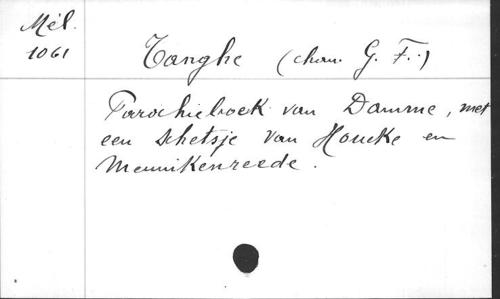 Mél.
1061
Tanghe (chan. G. F.:)
Parochieboek van Damme, met
een schetsje van Houcke en
Mennikenreede.